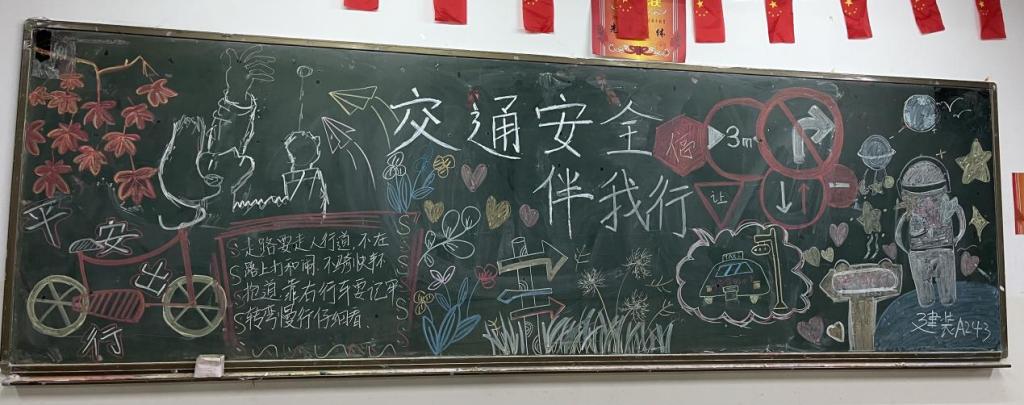 交通安全
伴我行
停
3m
让
平安出行
走路要走人行道,不在
路上打和闹.不跨快车
道.靠右行车要记牢
转弯慢行仔细看.
建装A243